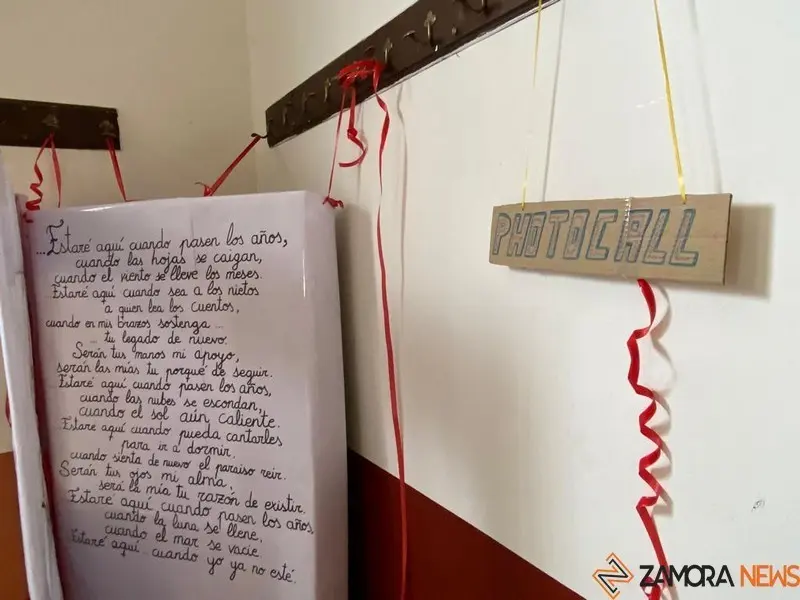 ...Estaré aquí cuando pasen los años,
cuando las hojas se caigan,
cuando el viento se lleve los meses.
Estaré aquí cuando sea a los nietos
a quien lea los cuentos,
cuando en mis brazos sostenga...
...tu legado de nuevo.
Serán tus manos mi apoyo,
serán las mías tu porqué de seguir.
Estaré aquí cuando pasen los años,
cuando las nubes se escondan,
cuando el sol aún caliente.
Estaré aquí cuando pueda cantarles
para ir a dormir,
cuando sienta de nuevo el paraíso reír.
Serán tus ojos mi alma,
será la mía tu razón de existir.
Estaré aquí cuando pasen los años,
cuando la luna se llene,
cuando el mar se vacíe.
Estaré aquí... cuando yo ya no esté.
PHOTOCALL
ZAMORA NEWS